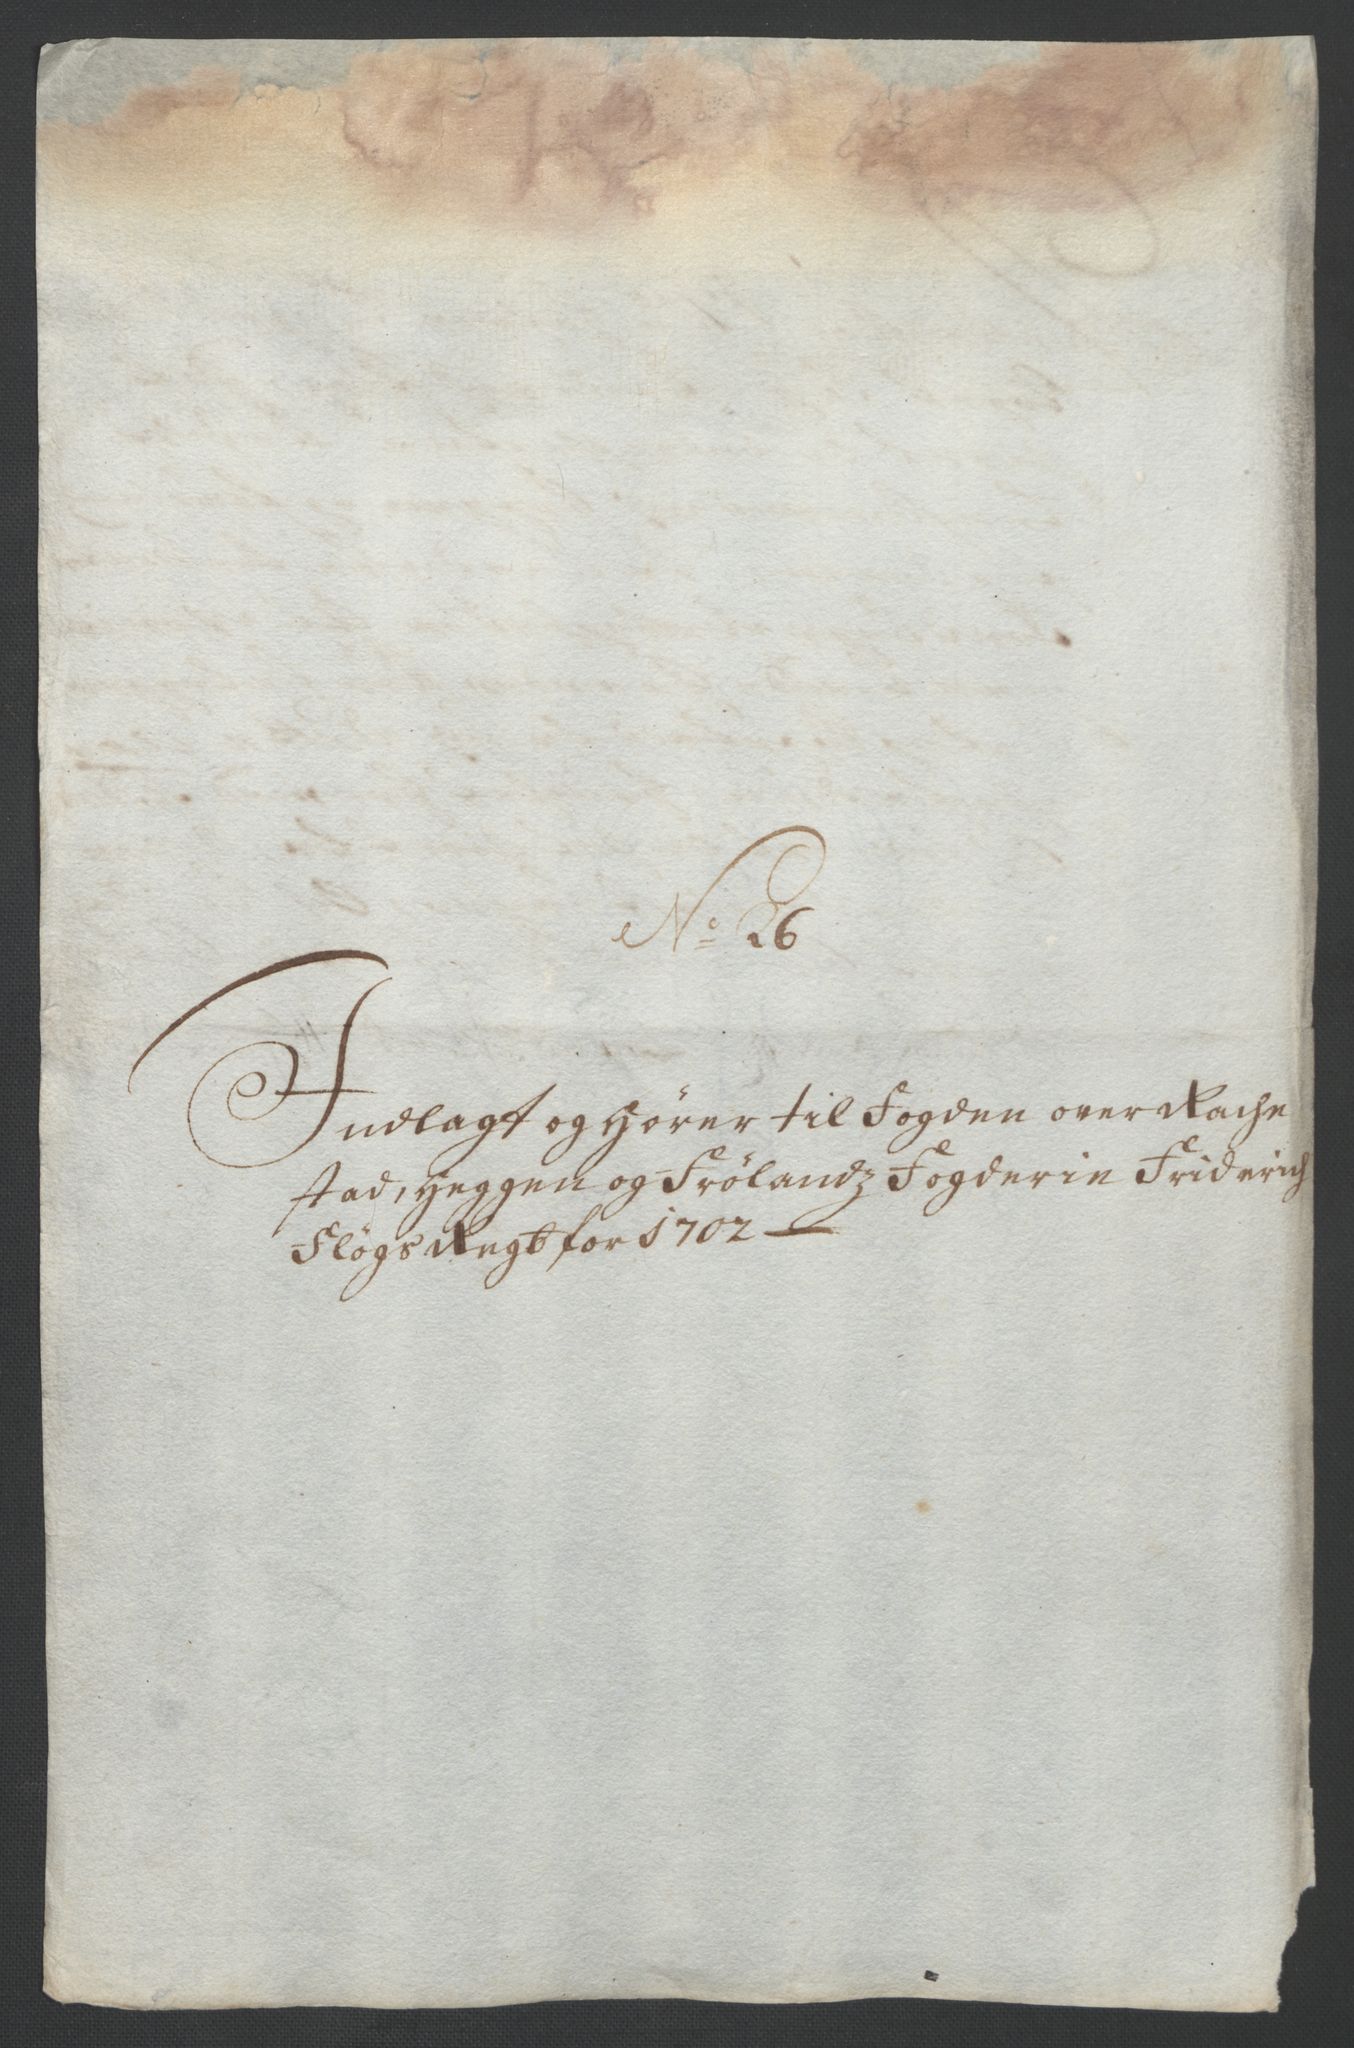 No 26
Indlagt og hører til Fogden over Rache
stad, Heggen og Frølandz Fogderie Friderich
Fløgs Regt for 1702